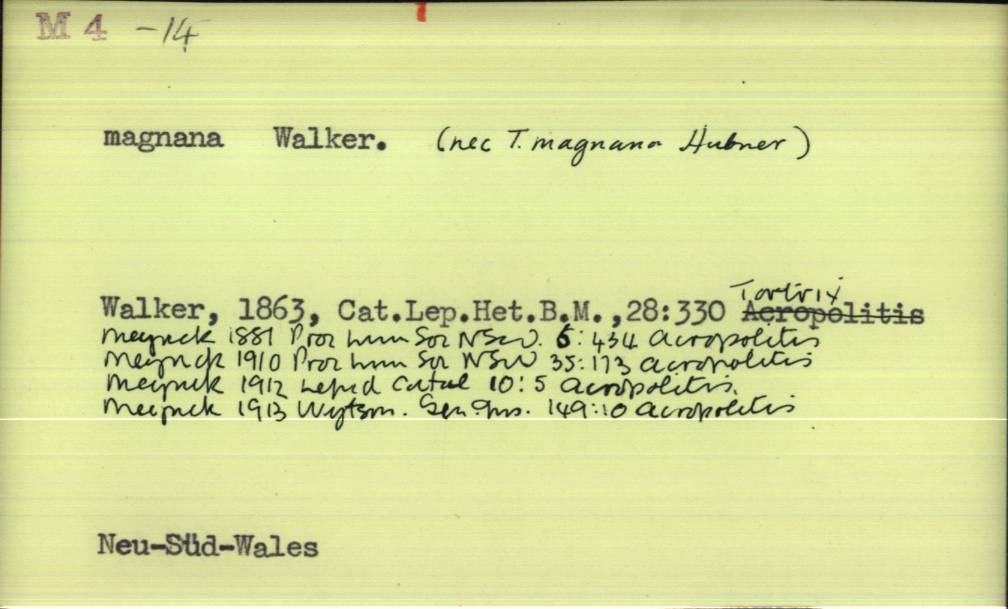 M 4 -14
magnana Walker. (nec T. magnana Hubner)
Tortrix
Walker, 1863, Cat.Lep.Het.B.M.,28:330 Acropolitis
Meyrick 1881 Proc Linn Soc NSW. 6: 434 Acropolitis
Meyrick 1910 Proc Linn Soc NSW 35:173 Acropolitis
Meyrick 1912 Lepid Catal 10: 5 Acropolitis.
Meyrick 1913 Wytsm. Gen. Ins. 149:10 Acropolitis
Neu-Süd-Wales